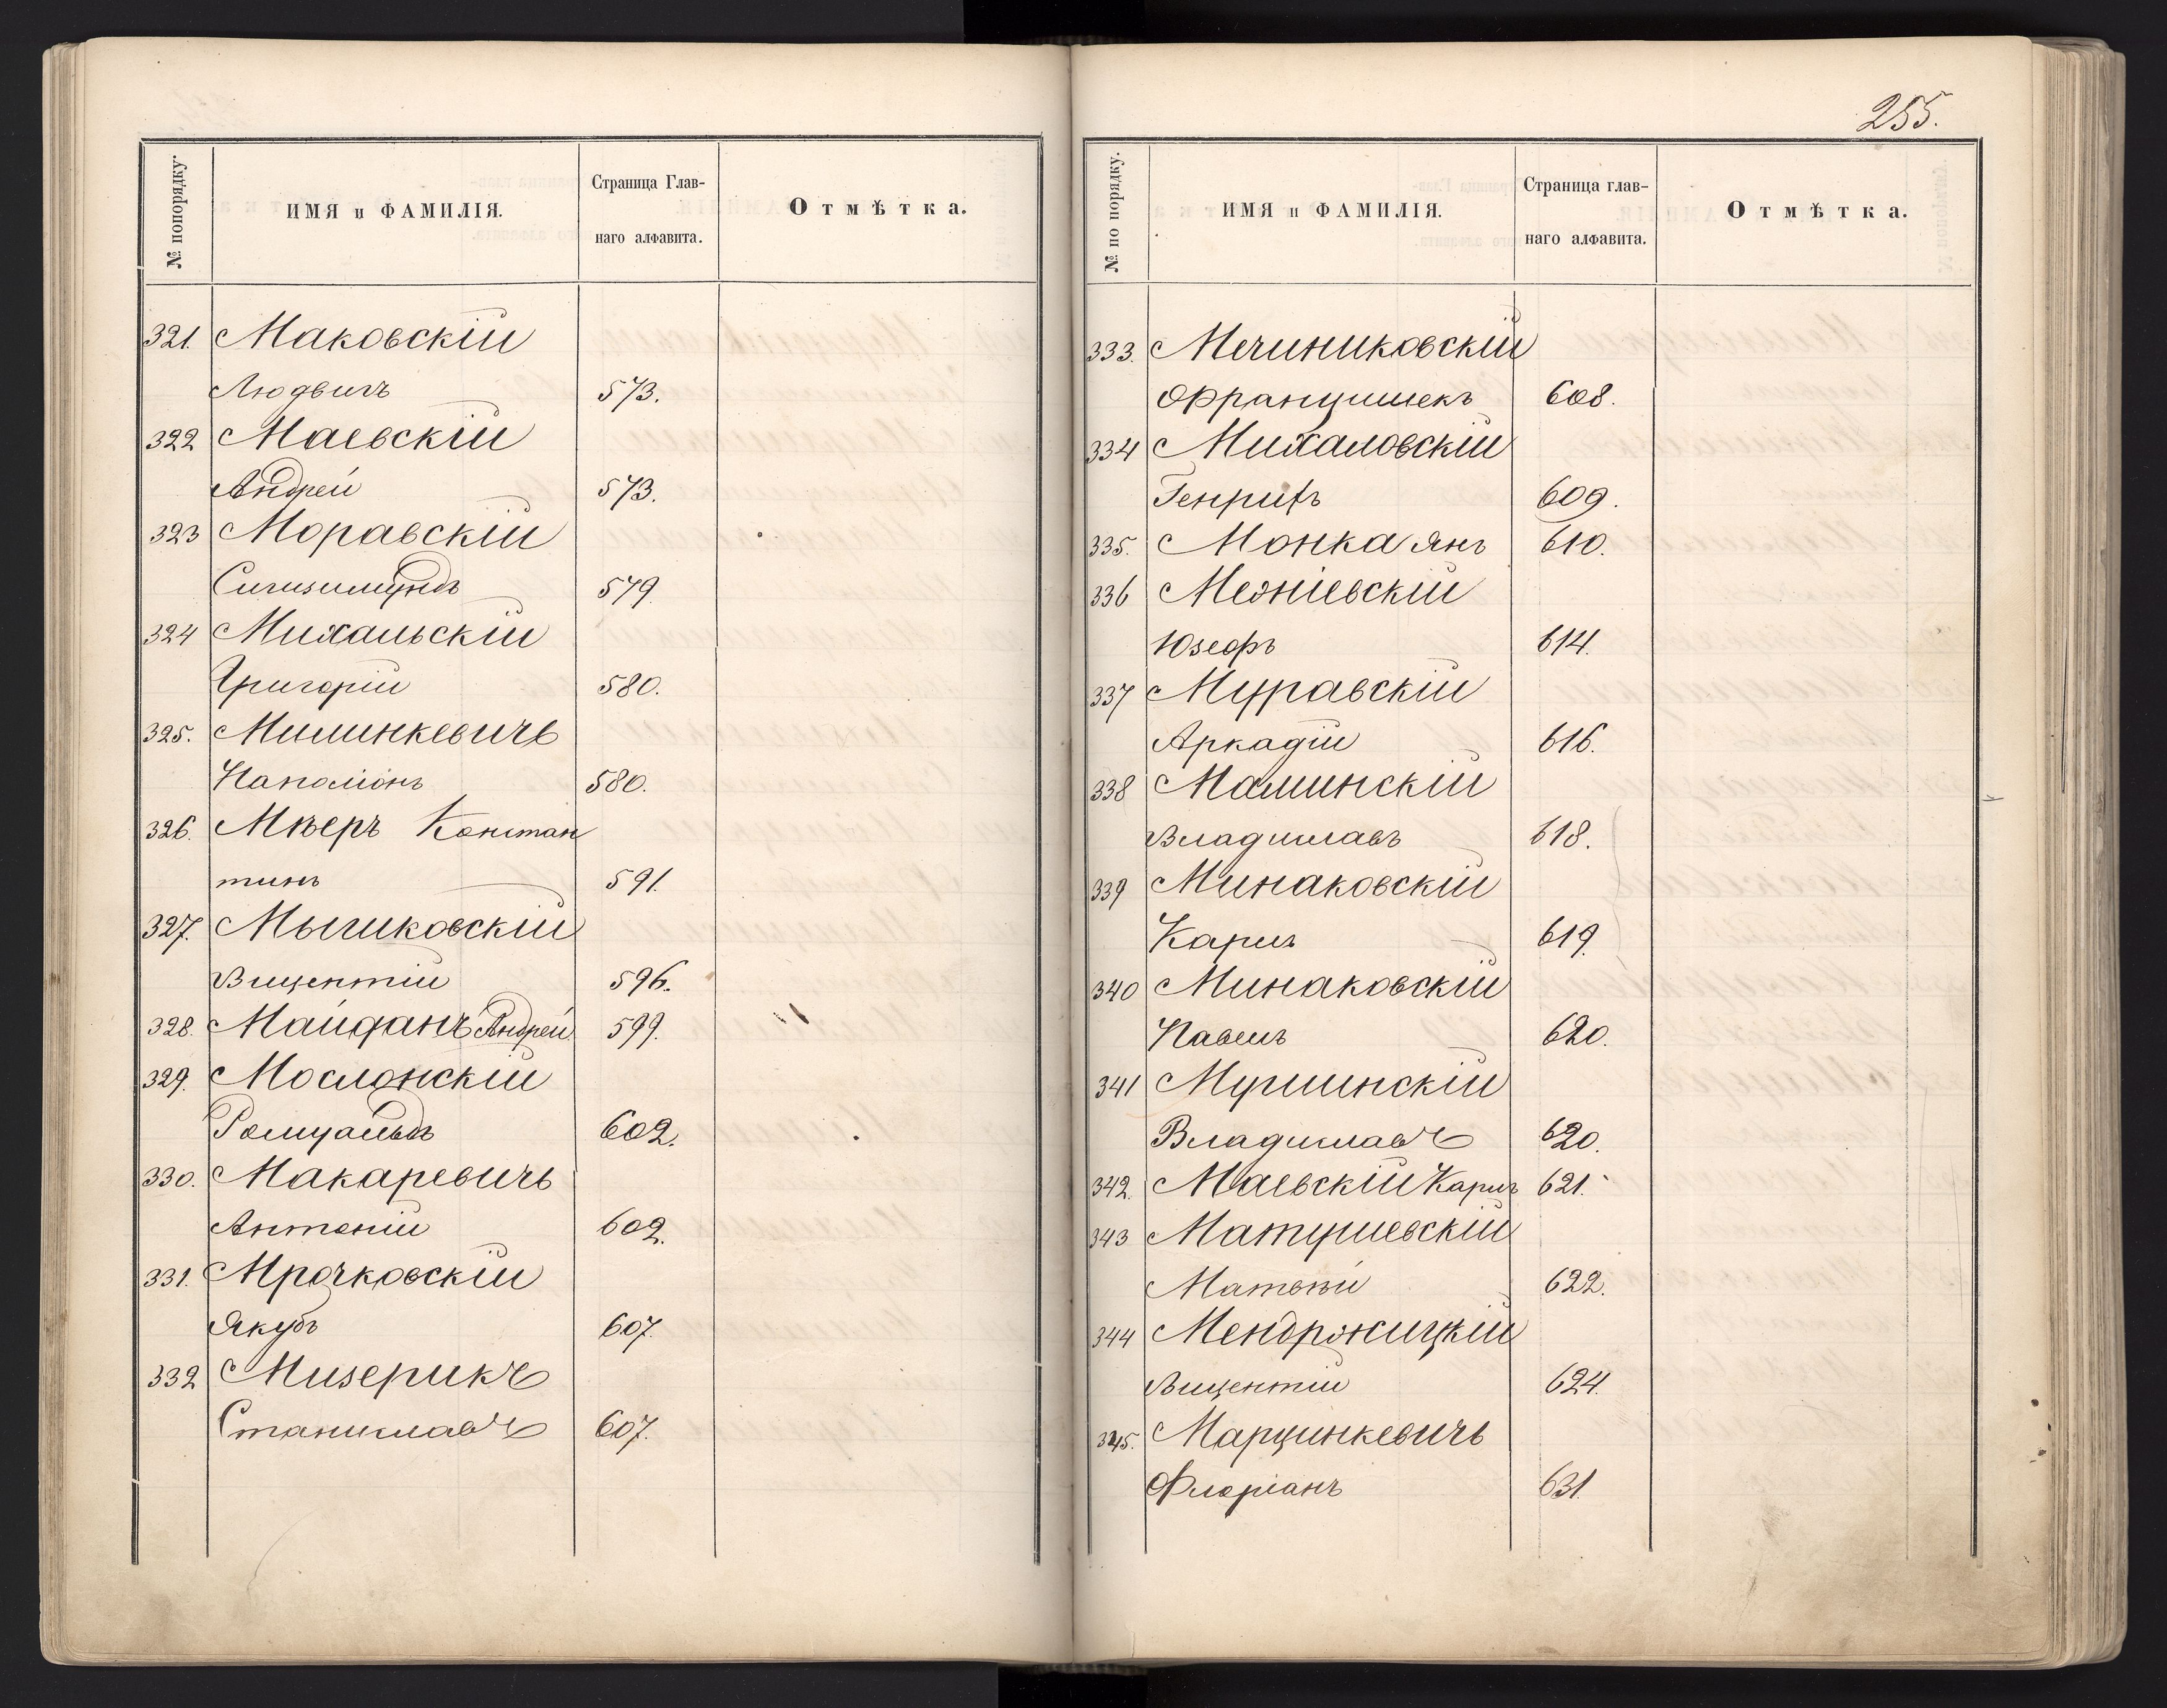 № попорядку.
ИМЯ и ФАМИЛІЯ.
Страница Глав-
наго алфавита.
Отмѣтка.
321. Маковскій
Людвигъ 573.
322 Маевскій
Андрей 573.
323 Моравскій
Сигизмундъ 579
324 Михальскій
Григорій 580.
325. Милинкевичъ
Наполіонъ 580.
326. Мѣеръ Констан
тинъ 591.
327. Мычиковскій
Вицентій 596.
328. Майданъ Андрей 599.
329. Мослонскій
Ромуальдъ 602.
330. Макаревичъ
Антоній 602.
331. Мрочковскій
Якубъ 607.
332 Мизерикъ
Станиславъ 607.
255.
№ по порядку.
ИМЯ и ФАМИЛІЯ.
Страница глав-
наго алфавита.
Отмѣтка.
333. Мечниковскій
Францишекъ 608.
334 Михаловскій
Генрихъ 609.
335. Монка Янъ 610.
336 Межніевскій
Юзефъ 614.
337 Муравскій
Аркадій 616.
338 Малинскій
Владиславъ 618.
339 Минаковскій
Карлъ 619
340 Минаковскій
Павелъ 620.
341
Владиславъ 620.
342. Маевскій Карлъ 621.
343 Матушевскій
Матвѣй 622.
344 Мендржицкій
Вицентій 624.
345. Марцинкевичъ
Флоріанъ 631.